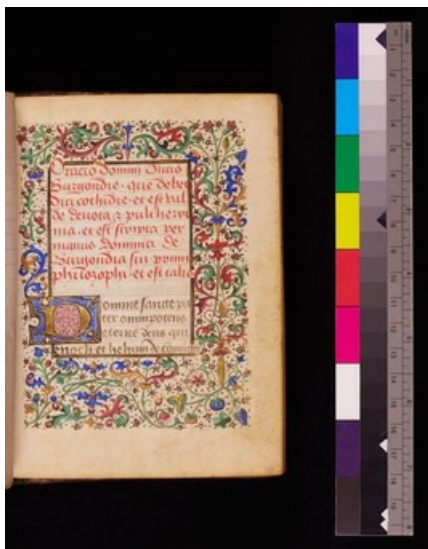 Oracio domini Ducis
Burgondie. que debet
dici cothidie. et est val
de devota & pulcherri
ma. et est scripta per
manus dominici de
Burgondia sui
philozophi. et est talis
Domine sancte pa
ter omnipotens
eterne deus qui
enoch et helyam